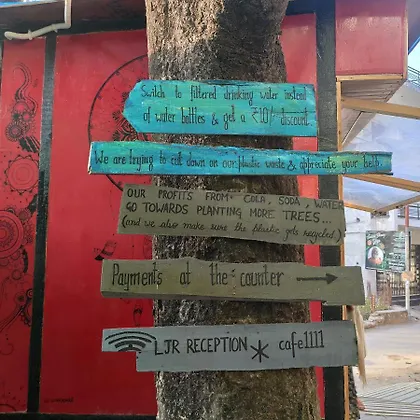 Switch to filtered drinking water instead
of water bottles & get a ₹10/- discount.
We are trying to cut down on our plastic waste & appreciate your help.
OUR PROFITS FROM COLA, SODA, WATER
GO TOWARDS PLANTING MORE TREES...
(and we also make sure the plastic gets recycled)
Payments at the counter →
LJR RECEPTION * cafe1111